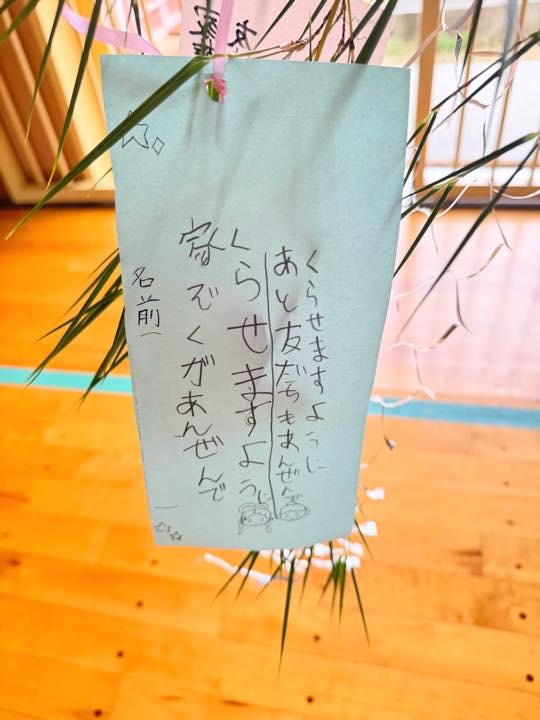 家ぞくがあんぜんで
くらせますように
あと友だちもあんぜんで
くらせますように
名前